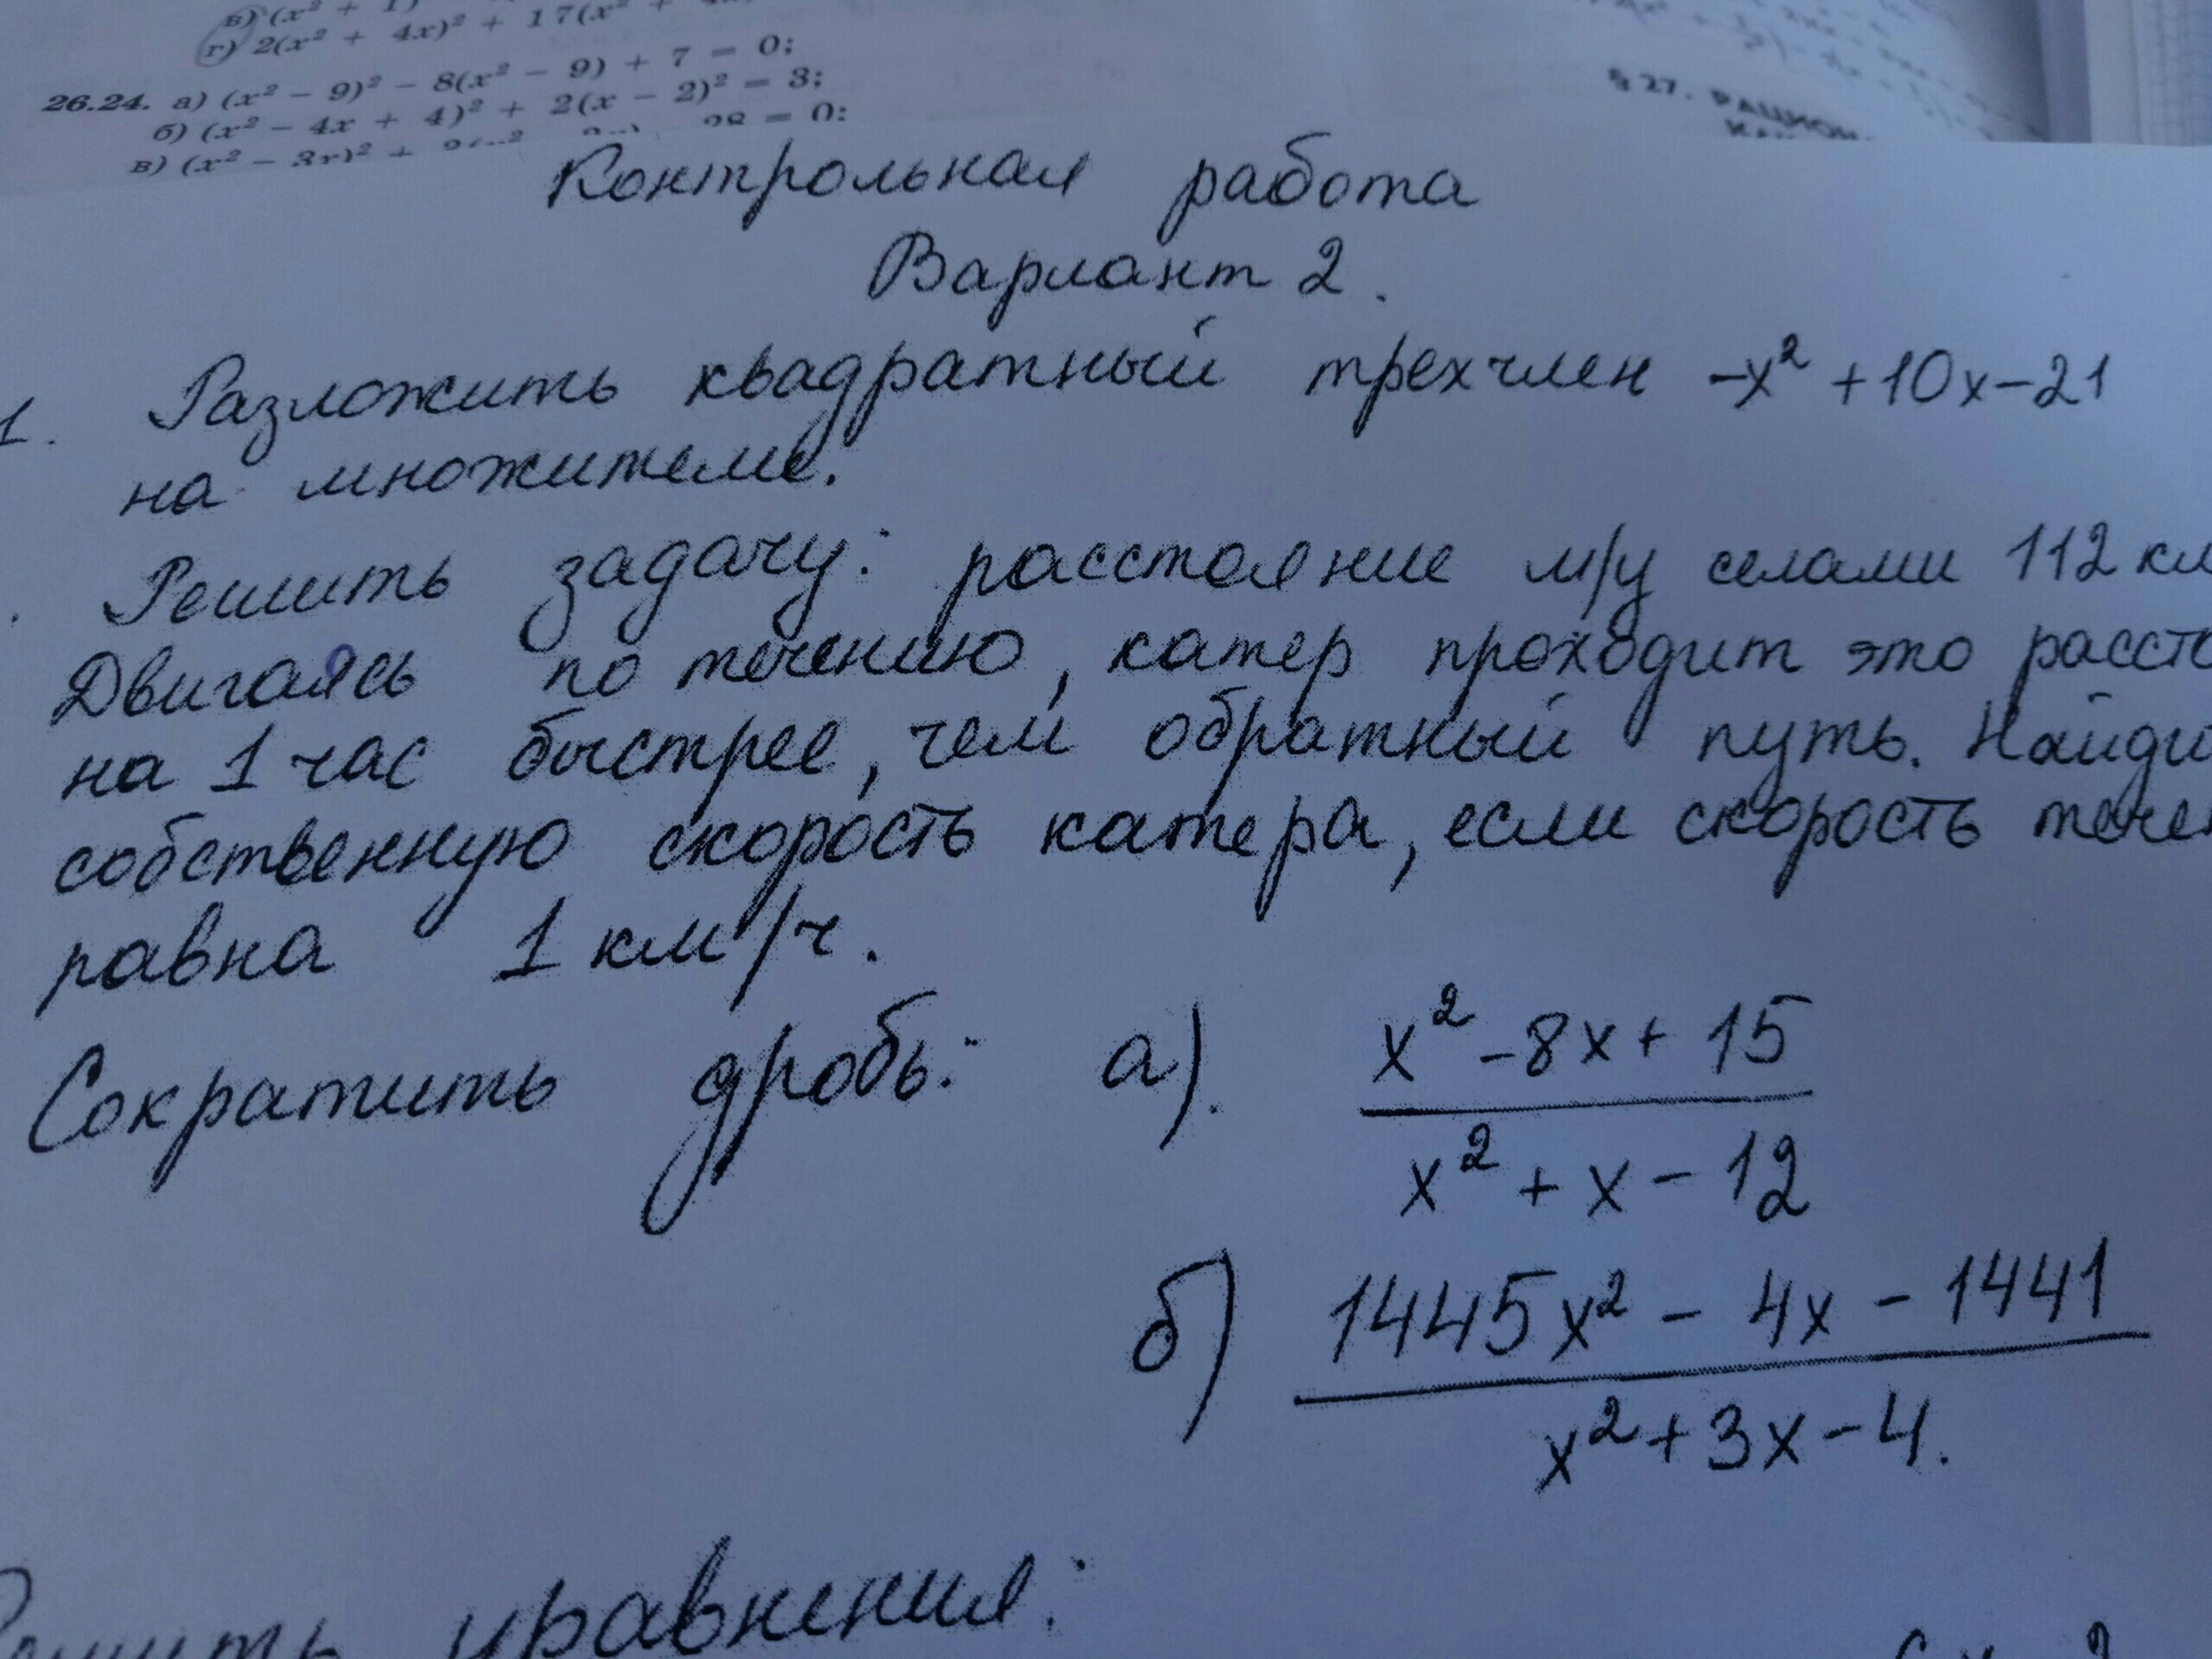 в) (x² + 1)
г) 2(x² + 4x)² + 17(x² +
26.24. а) (x² − 9)² − 8(x² − 9) + 7 = 0;
б) (x² − 4x + 4)² + 2(x − 2)² = 3;
в) (x² − 3x)² + 28 = 0;
§ 27. РАЦИОН
Контрольная работа
Вариант 2.
1. Разложить квадратный трехчлен −x² + 10x − 21
на множители.
. Решить задачу: расстояние м/у селами 112 км
Двигаясь по течению, катер проходит это расст
на 1 час быстрее, чем обратный путь. Найди
собственную скорость катера, если скорость тече
равна 1 км/ч.
Сократить дробь: а). x² − 8x + 15
x² + x − 12
б) 1445x² − 4x − 1441
x² + 3x − 4.
уравнения: